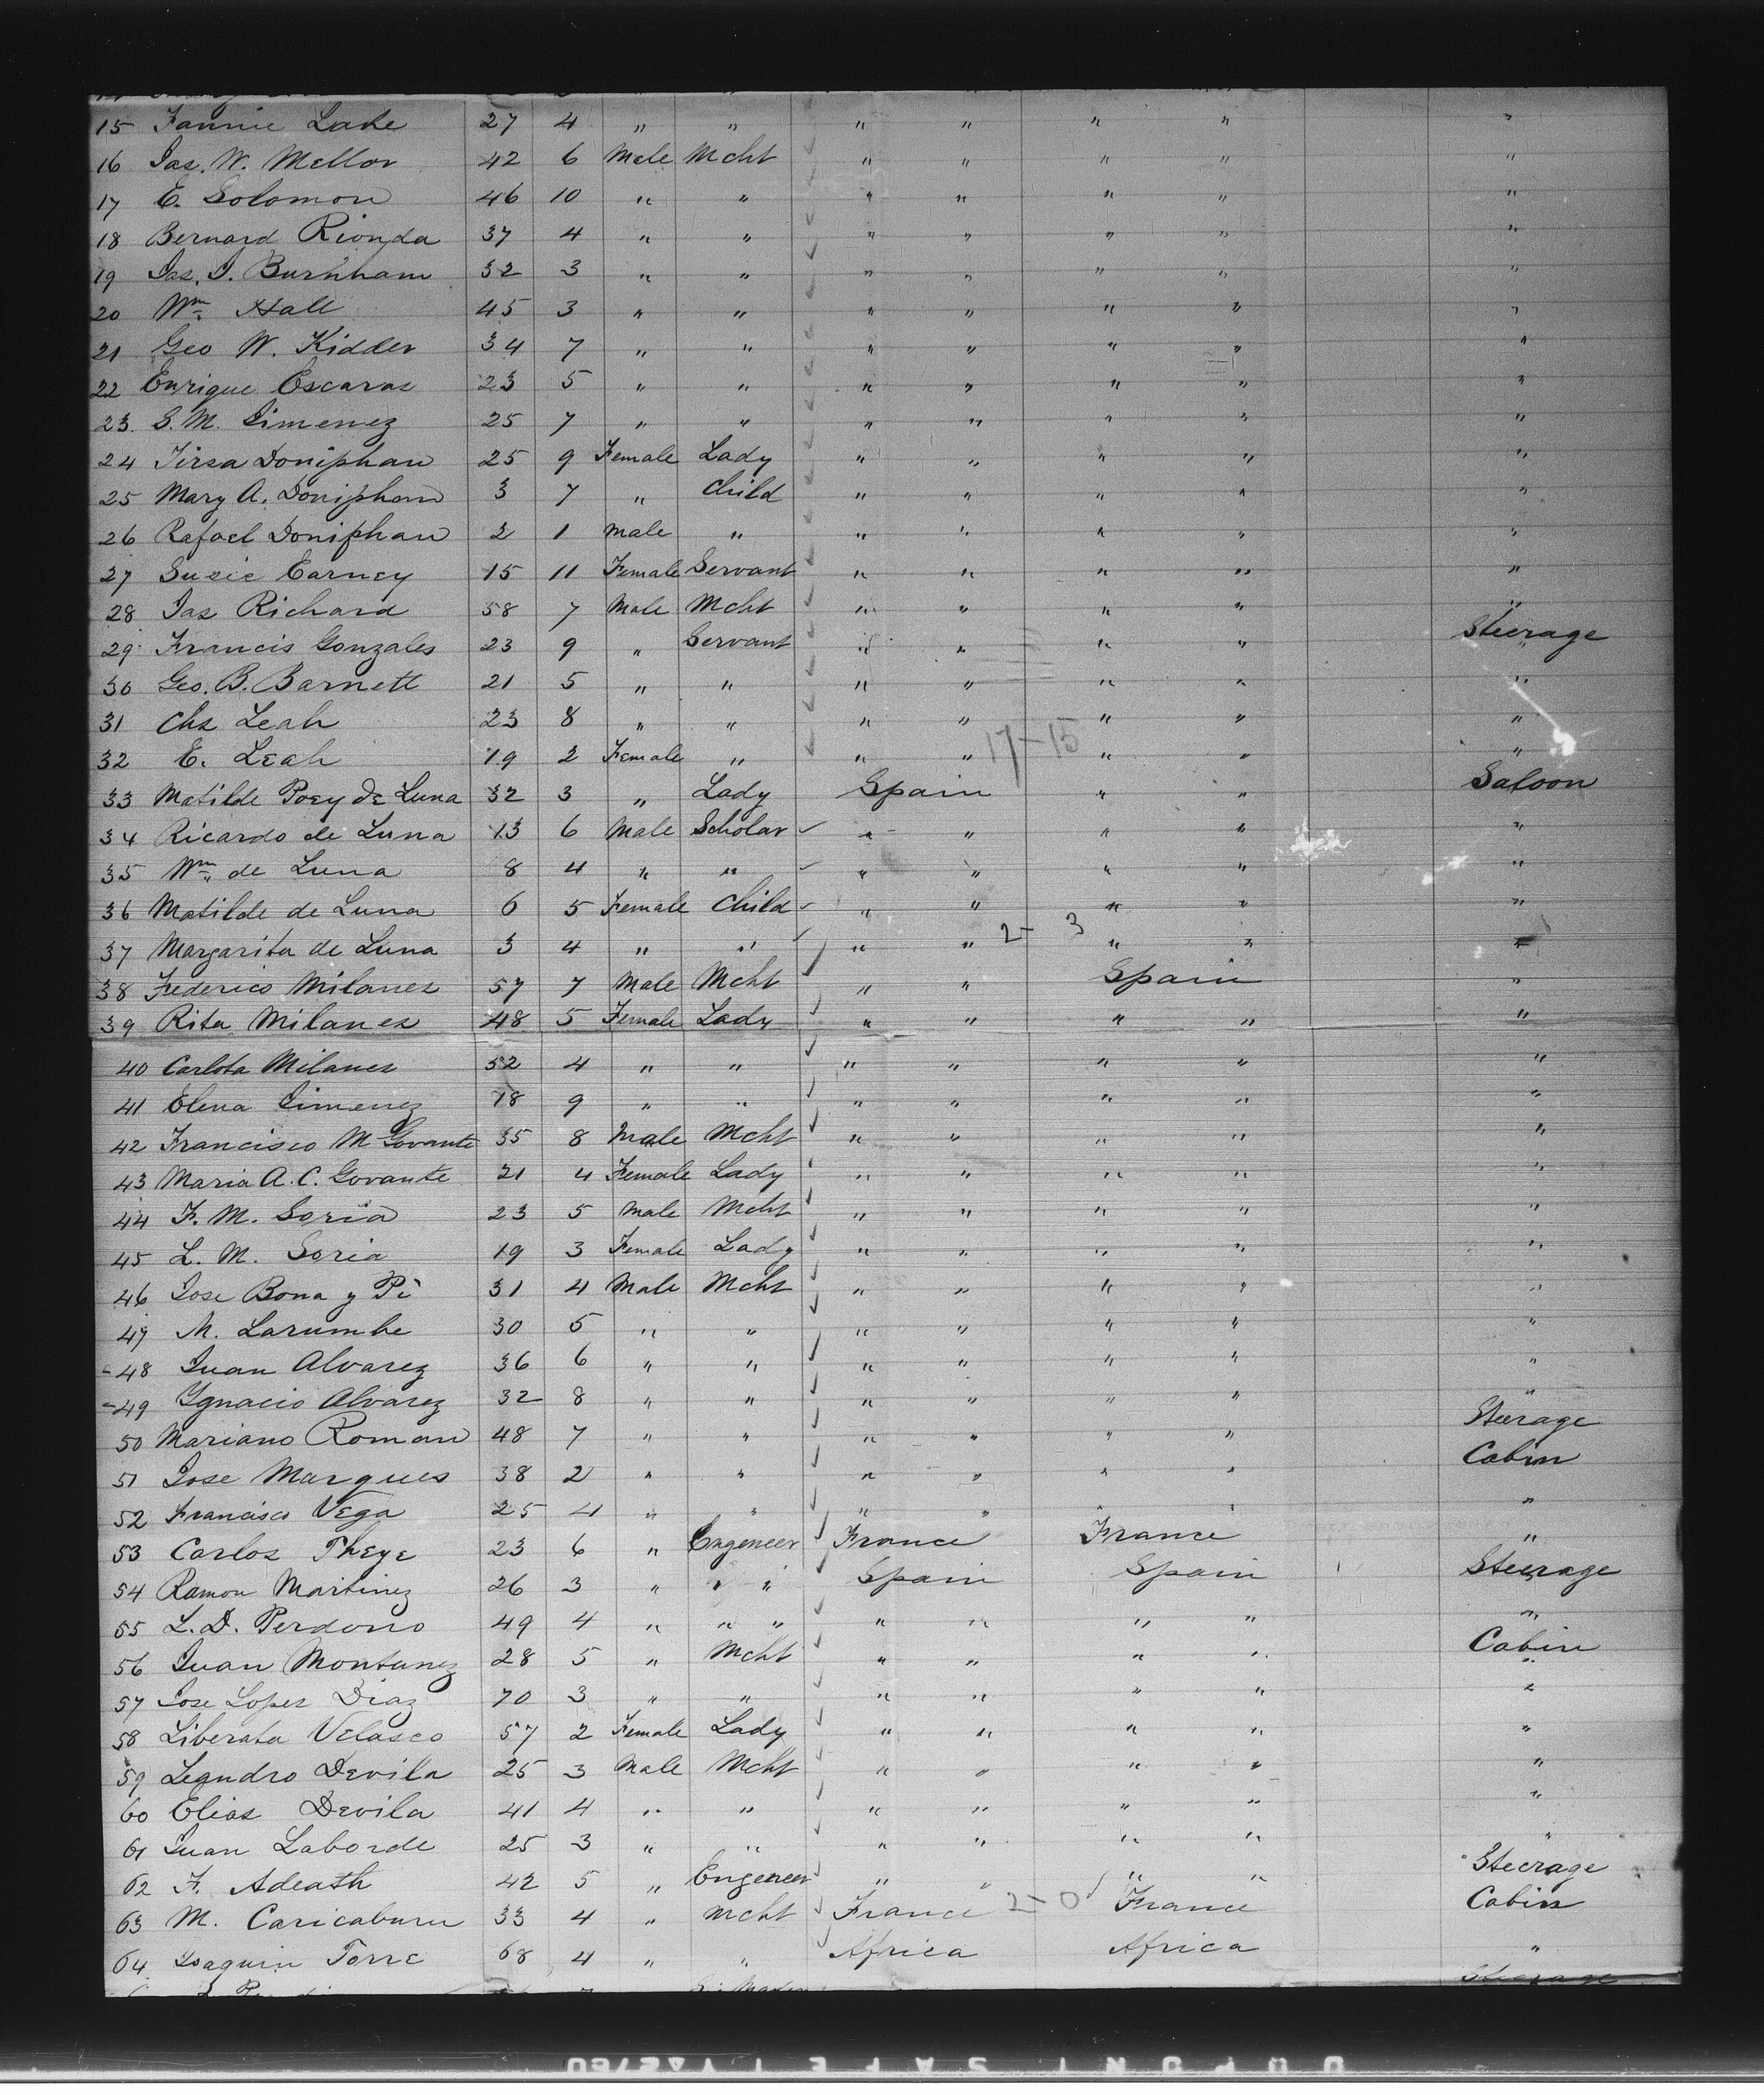 15 Fannie Lake 27 4 " " " " " " "
16 Jas. W. Mellor 42 6 Male Mcht " " " " "
17 E. Solomon 46 10 " " " " " " "
18 Bernard Rionda 37 4 " " " " " " "
19 Jas. J. Burnham 32 3 " " " " " " "
20 Wm Hall 45 3 " " " " " " "
21 Geo W. Kidder 34 7 " " " " " " "
22 Enrique Escaras 23 5 " " " " " " "
23. S. M. Jimenez 25 7 " " " " " " "
24 Tirsa Doniphan 25 9 Female Lady " " " " "
25 Mary A. Doniphan 3 7 " Child " " " " "
26 Rafael Doniphan 2 1 Male " " " " " "
27 Susie Earney 15 11 Female Servant " " " " "
28 Jas Richard 58 7 Male Mcht " " " " "
29 Francis Gonzales 23 9 " Servant " " " " Steerage "
30 Geo. B. Barnett 21 5 " " " " " " "
31 Chs Leah 23 8 " " " " " " "
32 E. Leah 19 2 Female " " " 17-15 " " "
33 Matilde Poey de Luna 32 3 " Lady Spain " " Saloon
34 Ricardo de Luna 13 6 Male Scholar " " " " "
35 Wm de Luna 8 4 " " " " " " "
36 Matilde de Luna 6 5 Female Child " " " " "
37 Margarita de Luna 3 4 " " " " 2-3 " " "
38 Federico Milanes 57 7 Male Mcht " " Spain "
39 Rita Milanes 48 5 Female Lady " " " " "
40 Carlota Milanes 52 4 " " " " " " "
41 Elena Jimenez 18 9 " " " " " " "
42 Francisco M Govante 35 8 Male Mcht " " " " "
43 Maria A. C. Govante 21 4 Female Lady " " " " "
44 F. M. Soria 23 5 Male Mcht " " " " "
45 L. M. Soria 19 3 Female Lady " " " " "
46 Jose Bona y Pi 31 4 Male Mcht " " " " "
47 M. Larumbe 30 5 " " " " " " "
48 Juan Alvarez 36 6 " " " " " " "
49 Ygnacio Alvarez 32 8 " " " " " " "
50 Mariano Roman 48 7 " " " " " " Steerage
51 Jose Marques 38 2 " " " " " " Cabin
52 Francisco Vega 25 4 " " " " " " "
53 Carlos Theye 23 6 " Engeneer France France "
54 Ramon Martinez 26 3 " " " Spain Spain Steerage
55 L. D. Perdomo 49 4 " " " " " " " "
56 Juan Montanez 28 5 " Mcht " " " " Cabin "
57 Jose Lopez Diaz 70 3 " " " " " " "
58 Liberata Velasco 57 2 Female Lady " " " " "
59 Leandro Devila 25 3 Male Mcht " " " " "
60 Elias Devila 41 4 " " " " " " "
61 Juan Laborde 25 3 " " " " " " "
62 F. Adeath 42 5 " Engeneer " " " " Steerage
63 M. Caricaburu 33 4 " Mcht France 2-0 France Cabin
64 Joaquin Torre 68 4 " " Africa Africa "
Steerage
DUPONT SAFETY